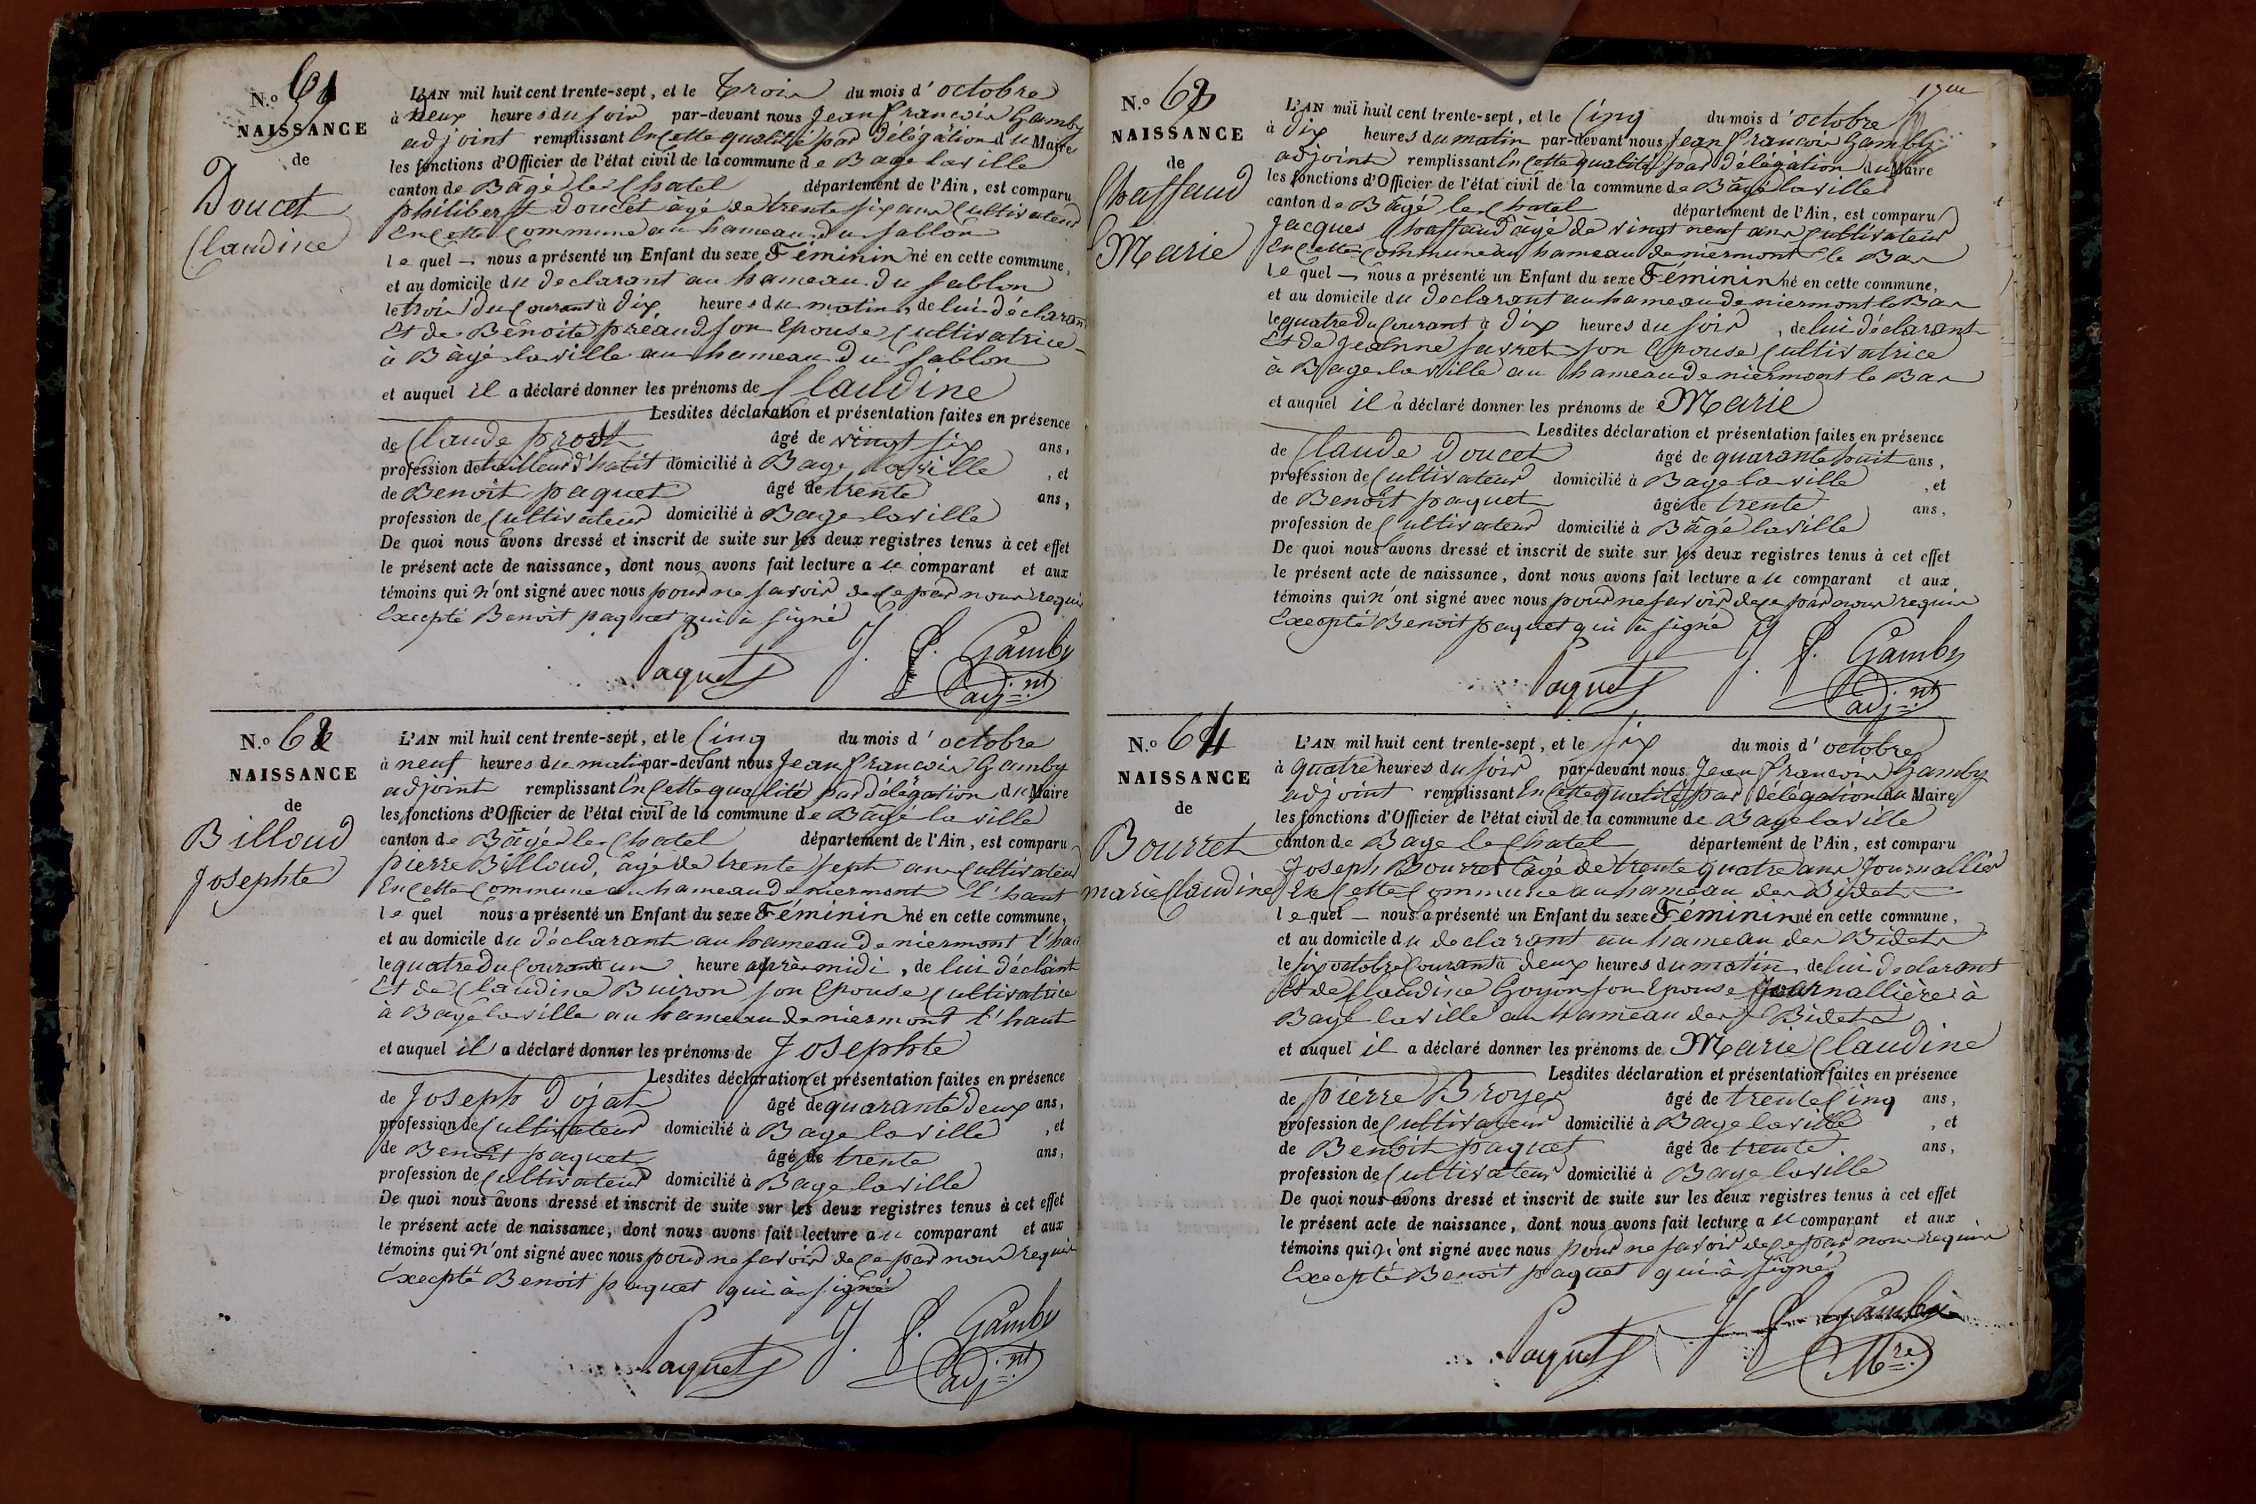 N.º 61
NAISSANCE
de
Doucet
Claudine
L'AN mil huit cent trente-sept, et le Trois du mois d' octobre
à deux heures du soir par-devant nous Jean francois Gamby
adjoint remplissant En Cette qualité par délégation du Maire
les fonctions d'Officier de l'état civil de la commune de Bagé la ville
canton de Bâgé le Chatel département de l'Ain, est comparu
philibert doucet âgé de trente six ans Cultivateur
En Cette Commune au hameau du sablon
le quel nous a présenté un Enfant du sexe Féminin né en cette commune,
et au domicile du declarant au hameau du sablon
le trois du Courant à dix heures du matin, de lui déclarant
Et de Benoite préaud son Epouse, Cultivatrice
à Bâgé la ville au hameau du sablon
et auquel il a déclaré donner les prénoms de Claudine
Lesdites déclaration et présentation faites en présence
de Claude prost âgé de vingt six ans,
profession de tailleur d'habit domicilié à Bage la ville, et
de Benoit paquet âgé de trente ans,
profession de Cultivateur domicilié à Bage la ville
De quoi nous avons dressé et inscrit de suite sur les deux registres tenus à cet effet
le présent acte de naissance, dont nous avons fait lecture au comparant et aux
témoins qui n'ont signé avec nous pour ne savoir de Ce par nous requis
Excepté Benoit paquet qui à signé
Paquet J. F. Gamby
adj.nt
N.º 62
NAISSANCE
de
Billoud
Josephte
L'AN mil huit cent trente-sept, et le Cinq du mois d' octobre
à neuf heures du matin par-devant nous Jean francois Gamby
adjoint remplissant En Cette qualité par délégation du Maire
les fonctions d'Officier de l'état civil de la commune de Bâgé la ville
canton de Bâgé le Chatel département de l'Ain, est comparu
pierre Billoud, âgé de trente sept ans Cultivateur
En Cette Commune au hameau de niermont l'haut
le quel nous a présenté un Enfant du sexe Féminin né en cette commune,
et au domicile du déclarant au hameau de niermont l'haut
le quatre du Courant à un heure après midi, de lui déclarant
Et de Claudine Buiron son Epouse Cultivatrice
à Bagé la ville au hameau de niermont l'haut
et auquel il a déclaré donner les prénoms de Josephte
Lesdites déclaration et présentation faites en présence
de Joseph Dojat âgé de quarante deux ans,
profession de Cultivateur domicilié à Bage la ville, et
de Benoit paquet âgé de trente ans,
profession de Cultivateur domicilié à Bage la ville
De quoi nous avons dressé et inscrit de suite sur les deux registres tenus à cet effet
le présent acte de naissance, dont nous avons fait lecture au comparant et aux
témoins qui n'ont signé avec nous pour ne savoir de Ce par nous requis
Excepté Benoit paquet qui à signé
Paquet J. F. Gamby
adj.nt
N.º 63
NAISSANCE
de
Chaffaud
Marie
L'AN mil huit cent trente-sept, et le Cinq du mois d' octobre
à dix heures du matin par-devant nous Jean francois Gamby
adjoint remplissant En Cette qualité par délégation du Maire
les fonctions d'Officier de l'état civil de la commune de Bâgé la ville
canton de Bâgé le Chatel département de l'Ain, est comparu
Jacques Chaffaud âgé de vingt neuf ans Cultivateur
En Cette Commune au hameau de niermont le Bas
le quel nous a présenté un Enfant du sexe Féminin né en cette commune,
et au domicile du declarant au hameau de niermont le Bas
le quatre du Courant à dix heures du soir, de lui déclarant
Et de Jeanne savret son Epouse Cultivatrice
à Bage la ville au hameau de niermont le Bas
et auquel il a déclaré donner les prénoms de Marie
Lesdites déclaration et présentation faites en présence
de Claude Doucet âgé de quarante huit ans,
profession de Cultivateur domicilié à Bage la ville, et
de Benoit paquet âgé de trente ans,
profession de Cultivateur domicilié à Bâgé la ville
De quoi nous avons dressé et inscrit de suite sur les deux registres tenus à cet effet
le présent acte de naissance, dont nous avons fait lecture au comparant et aux
témoins qui n'ont signé avec nous pour ne savoir de Ce par nous requis
Excepté Benoit paquet qui à signé
Paquet J. F. Gamby
adj.nt
N.º 64
NAISSANCE
de
Bourret
marie Claudine
L'AN mil huit cent trente-sept, et le six du mois d' octobre
à quatre heures du soir par-devant nous Jean francois Gamby
adjoint remplissant En Cette qualité par délégation du Maire
les fonctions d'Officier de l'état civil de la commune de Bagé la ville
canton de Bage le Chatel département de l'Ain, est comparu
Joseph Bourret âgé de trente quatre ans Journallier
En Cette Commune au hameau des Bidets
le quel nous a présenté un Enfant du sexe Féminin né en cette commune,
et au domicile du declarant au hameau des Bidets
le six octobre Courant à deux heures du matin, de lui declarant
Et de Claudine Goyon son Epouse Journallière à
Bagé la ville au hameau des Bidets
et auquel il a déclaré donner les prénoms de Marie Claudine
Lesdites déclaration et présentation faites en présence
de pierre Broyer âgé de trente Cinq ans,
profession de Cultivateur domicilié à Bage la ville, et
de Benoit paquet âgé de trente ans,
profession de Cultivateur domicilié à Bage la ville
De quoi nous avons dressé et inscrit de suite sur les deux registres tenus à cet effet
le présent acte de naissance, dont nous avons fait lecture au comparant et aux
témoins qui n'ont signé avec nous pour ne savoir de Ce par nous requis
Excepté Benoit paquet qui à signé
Paquet J. F. Gamby
M.re